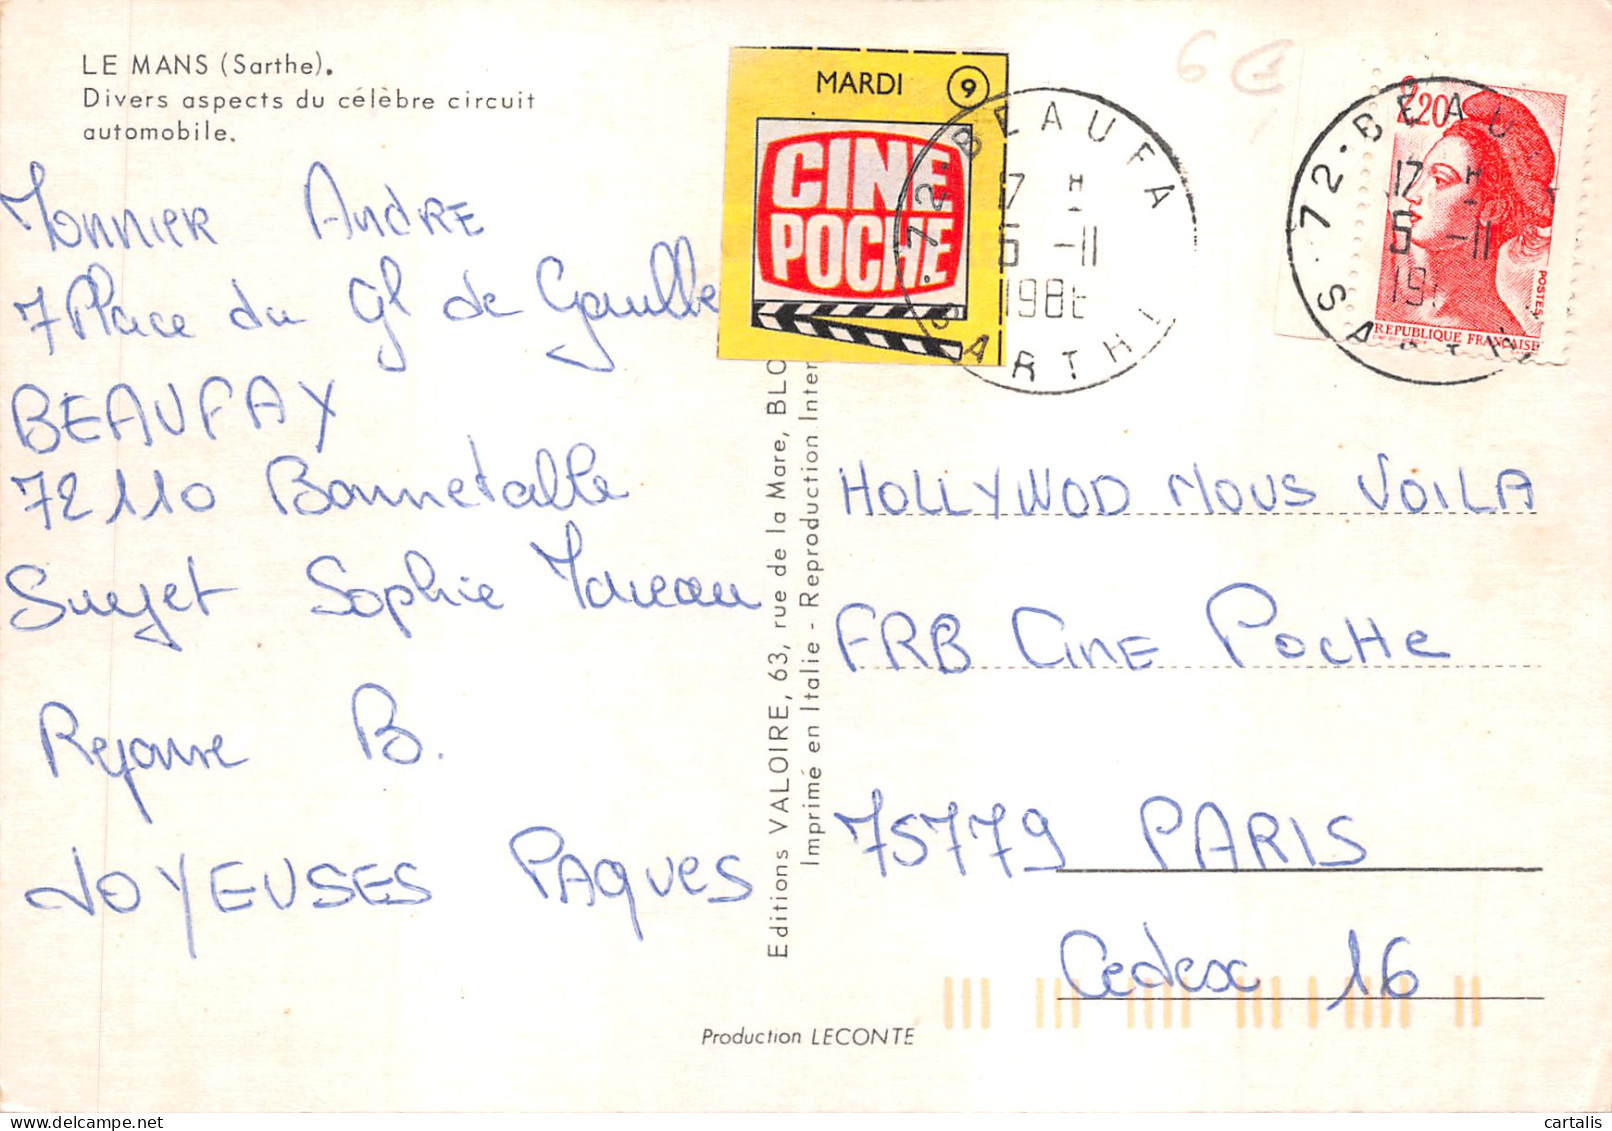 LE MANS (Sarthe).
Divers aspects du célèbre circuit
automobile.
Monnier André
7 Place du Gl de Gaulle
BEAUFAY
72110 Bonnetable
Suejet Sophie Mareau
Reponse B.
JOYEUSES PAQUES
MARDI 9
CINE
POCHE
72 - BEAUFA
17 H
5 -11
198
SARTHE
6 €
2,20
POSTES
REPUBLIQUE FRANÇAISE
72 - BEAU
17 H
5 -11
19
SARTH
Editions VALOIRE, 63, rue de la Mare, BLO
Imprimé en Italie - Reproduction Inter
HOLLYWOD NOUS VOILA
FRB CINE POCHE
75779 PARIS
Cedex 16
Production LECONTE
cartalis